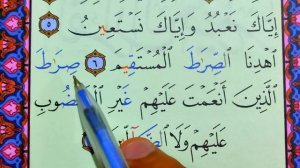 إِيَّاكَ نَعْبُدُ وَإِيَّاكَ نَسْتَعِينُ ٥
ٱهْدِنَا ٱلصِّرَٰطَ ٱلْمُسْتَقِيمَ ٦ صِرَٰطَ
ٱلَّذِينَ أَنْعَمْتَ عَلَيْهِمْ غَيْرِ ٱلْمَغْضُوبِ
عَلَيْهِمْ وَلَا